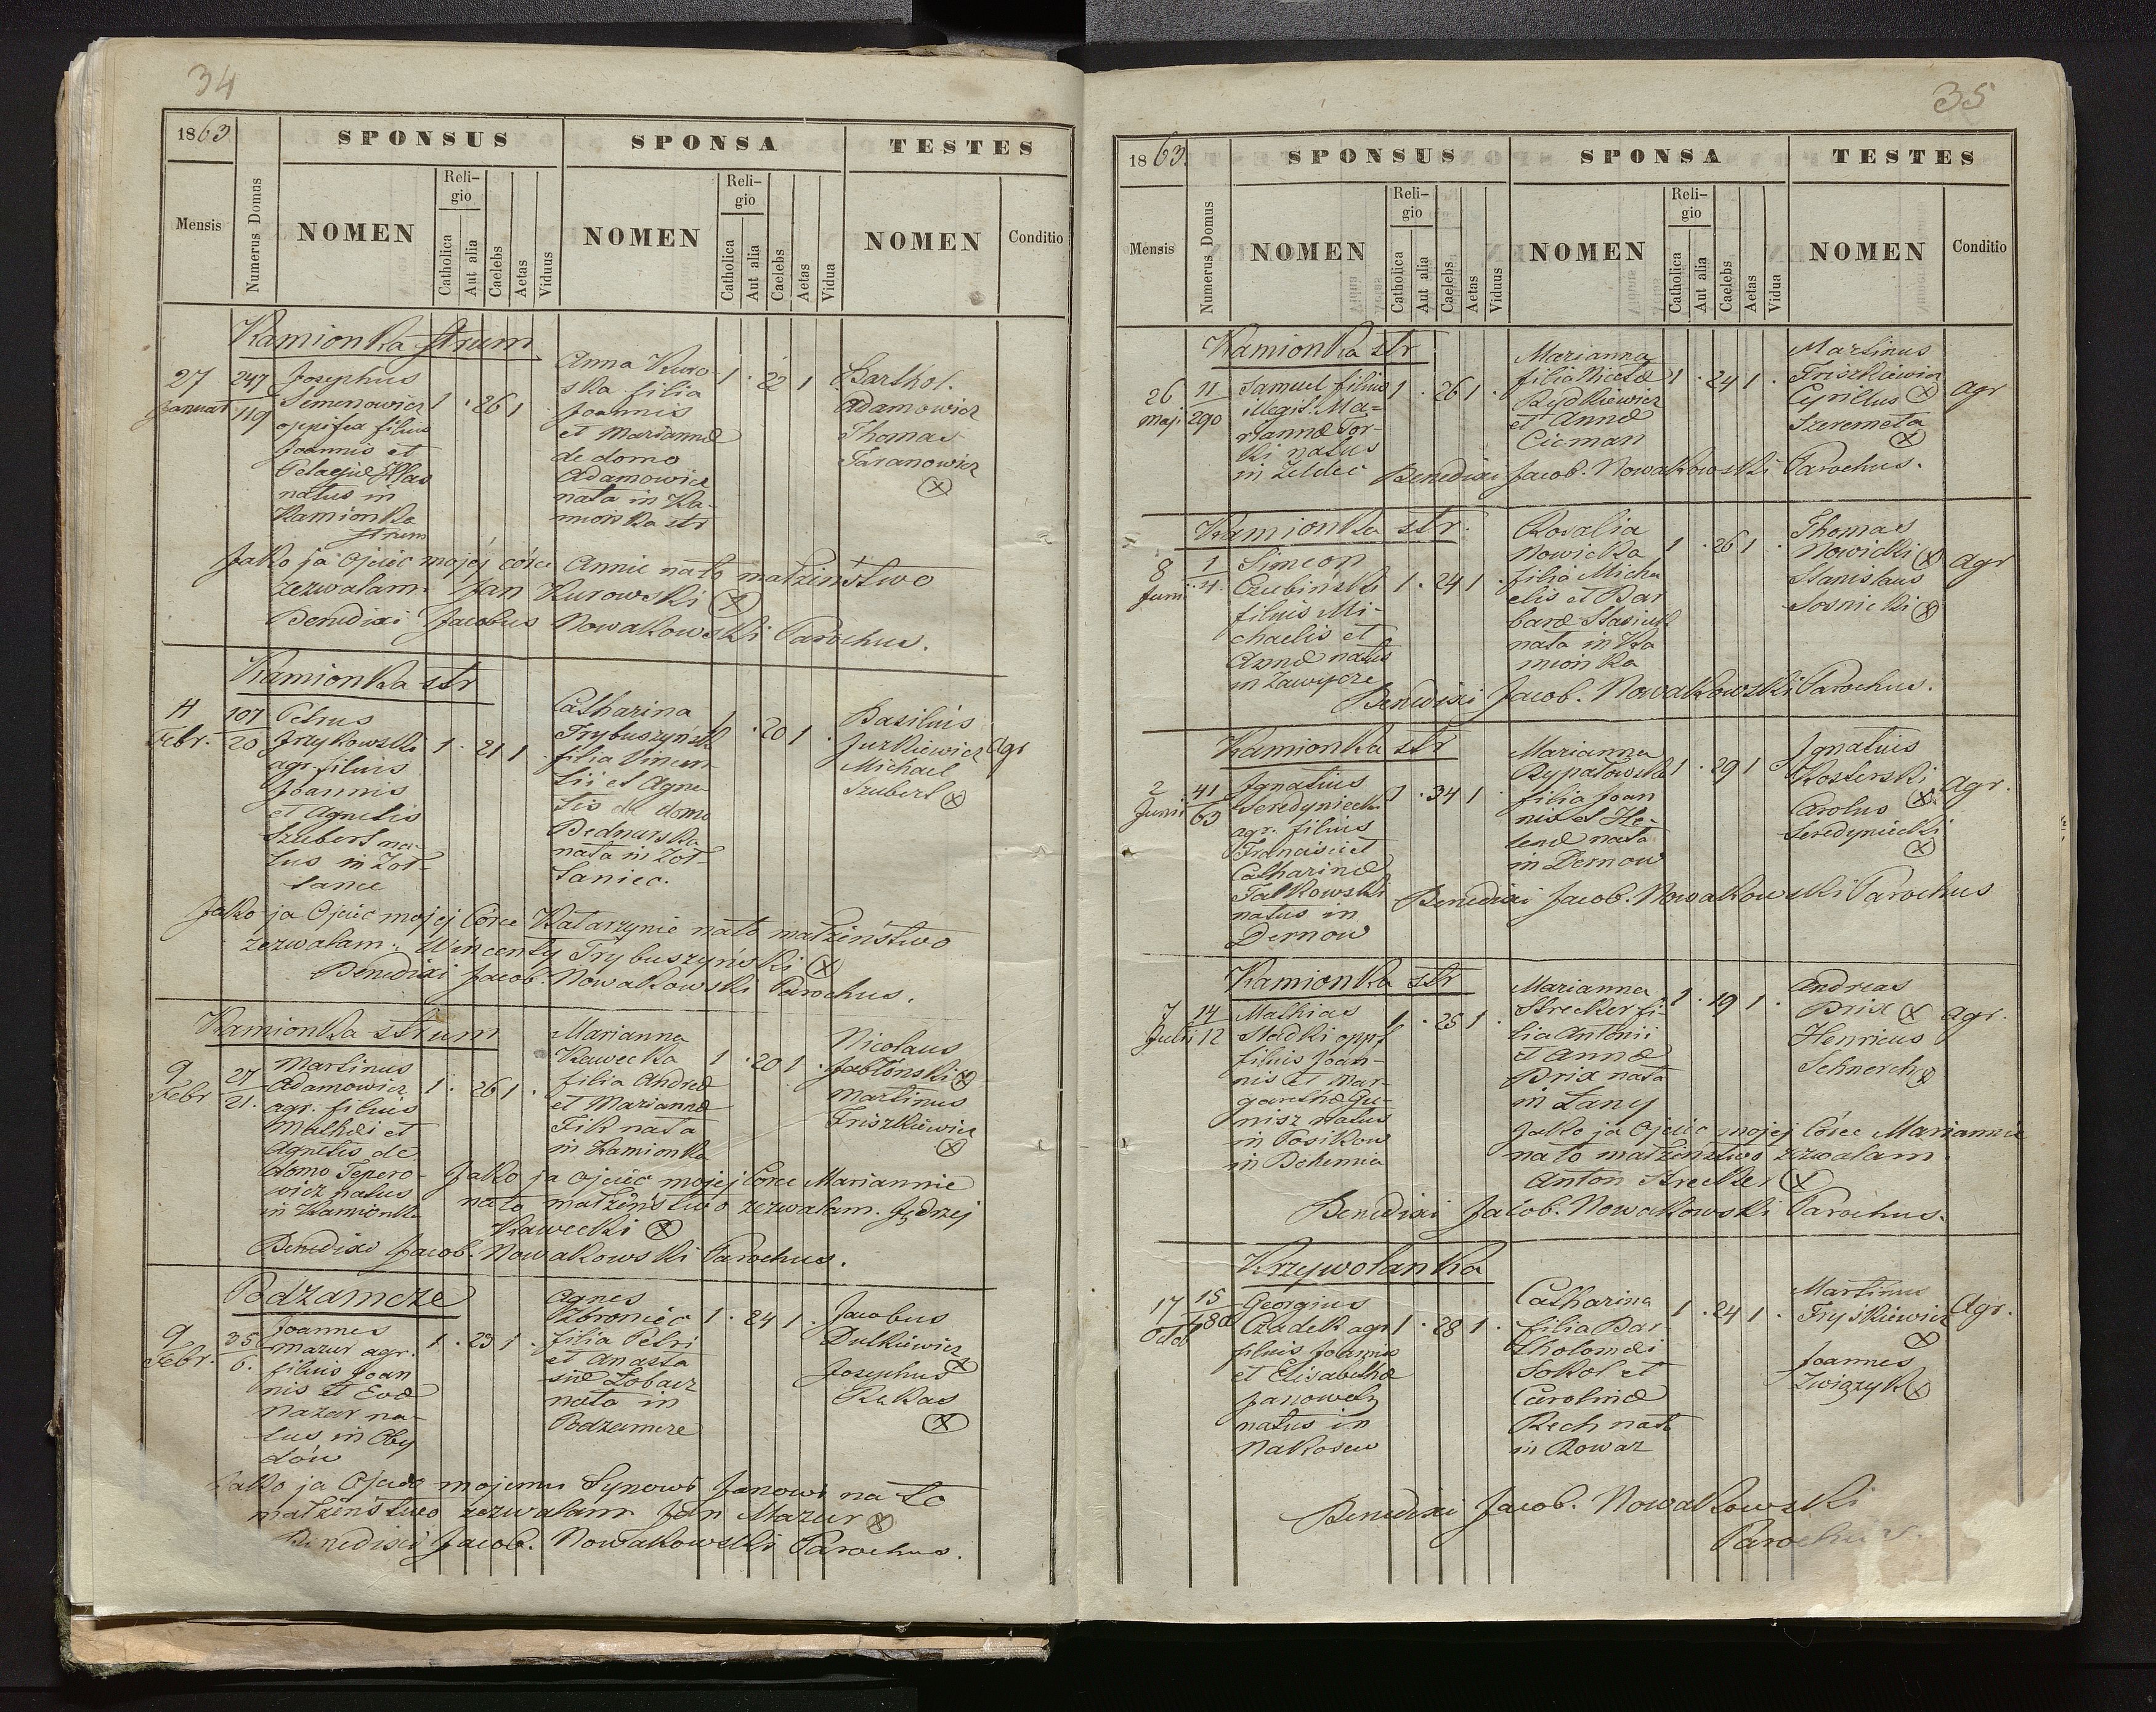 34
1863
SPONSUS SPONSA TESTES
Mensis Numerus Domus NOMEN Religio Catholica Aut alia Caelebs Aetas Viduus NOMEN Religio Catholica Aut alia Caelebs Aetas Vidua NOMEN Conditio
Kamionka strum
27 Januar
247
119
Josephus
Semenowicz
opifex filius
Joannis et
Pelagiæ
natus in
Kamionka
strum
1 · 26 1 ·
Anna Kuro-
ska filia
Joannis
et Mariannæ
de domo
Adamowicz
nata in Ka-
mionka str
1 · 22 1
Barthol.
Adamowicz
Thomas
Taranowicz
(X)
Jako ja Ojciec mojej córce Annie na to małżeństwo
zezwalam Jan Kurowski (X)
Benedixi Jacobus Nowakowski Parochus.
Kamionka str
Febr.
107
20
Petrus
Jrzykowski
agr. filius
Joannis
et Agnetis
Szubert na-
tus in Żoł-
tance
1 · 21 1
Catharina
Trybuszyńsk
filia Vincen-
tii et Agne-
tis de domo
Bednarska
nata in Żoł-
taniec.
1 · 20 1 ·
Basilius
Jurkiewicz
Michael
Szubert (X)
Agr
Jako ja Ojciec mojej Córce Katarzynie na to małżeństwo
zezwalam: Wincenty Trybuszyński (X)
Benedixi Jacob. Nowakowski Parochus.
Kamionka strum
9
Febr
27
21.
Martinus
Adamowicz
agr. filius
Mathæi et
Agnetis de
domo Tepero-
wicz natus
in Kamionka
1 · 26 1 ·
Marianna
Kawecka
filia Andreæ
et Mariannæ
Fik nata
in Kamionka
1 · 20 1 ·
Nicolaus
Jabłonski (X)
Martinus
Friszkiewicz
(X)
Jako ja Ojciec mojej Córce Mariannie
na to małżeństwo zezwalam. Jędrzej
Kawecki (X)
Benedixi Jacob. Nowakowski Parochus.
Podzamcze
9
Febr.
35
6.
Joannes
Mazur agr.
filius Joan
nis et Evæ
Mazur na-
tus in Oby
dów
1 · 23 1 ·
Agnes
Zbroniec
filia Petri
et Anasta
siæ Łobacz
nata in
Podzamcze
1 · 24 1 ·
Jacobus
Dulkiewicz
(X)
Josephus
Rakas
(X)
Jako ja Ojciec mojemu Synowi Janowi na to
małżeństwo zezwalam Jan Mazur (X)
Benedixi Jacob. Nowakowski Parochus.
35
1863.
SPONSUS SPONSA TESTES
Mensis Numerus Domus NOMEN Religio Catholica Aut alia Caelebs Aetas Viduus NOMEN Religio Catholica Aut alia Caelebs Aetas Vidua NOMEN Conditio
Kamionka str
26
maji
11
290
Samuel filius
illegit. Ma-
riannæ Tor-
ki natus
in Zeldec
1 · 26 1 ·
Marianna
filia Nicetæ
Rydkiewicz
et Annæ
Cicman
1 · 24 1 ·
Martinus
Friszkiewicz
Cyrillus (X)
Szeremeta
(X)
agr
Benedixi Jacob. Nowakowski Parochus.
Kamionka str.
8
Juni
1
4.
Simeon
Czubinski
filius Mi-
chaelis et
Annæ natus
in Zawycze
1 · 24 1 ·
Rosalia
Nowicka
filia Micha
elis et Bar
baræ Stasiuk
nata in Ka
mionka
1 · 26 1 ·
Thomas
Nowicki (X)
Stanislaus
Sosnicki (X)
agr
Benedixi Jacob. Nowakowski Parochus.
Kamionka str
2
Junii
41
63
Ignatius
Seredyniecki
agr. filius
Francisci et
Catharinæ
Falkowski
natus in
Dernow
1 · 34 1 ·
Marianna
Rypałowska
filia Joan
nis et He-
lenæ nata
in Dernow
1 · 29 1
Ignatius
Kosterski
(X)
Carolus
Seredyniecki
(X)
Agr.
Benedixi Jacob. Nowakowski Parochus
Kamionka str
7
Julii
14
12
Mathias
Sladki oppf
filius Joan-
nis et Mar-
garethæ Gu-
nisz natus
in Posikow
in Bohemia
1 · 25 1 ·
Marianna
Strecker fi-
lia Antonii
et Annæ
Brix nata
in Łany
1 · 19 1 ·
Andreas
Brix (X)
Henricus
Schnerch (X)
agr.
Jako ja Ojciec mojej Córce Mariannie
na to małżeństwo zezwalam
Anton Strecker (X)
Benedixi Jacob. Nowakowski Parochus.
Krzywolanka
17
Octob
15
Georgius
Czadek agr
filius Joannis
et Elisabethæ
Janowet
natus in
Nakosew
1 · 28 1 ·
Catharina
filia Bar-
tholomæi
Sokol et
Carolinæ
Rech nata
in Rowar
1 · 24 1 ·
Martinus
Fryśkiewicz
(X)
Joannes
Związyk (X)
Agr.
Benedixi Jacob. Nowakowski
Parochus.